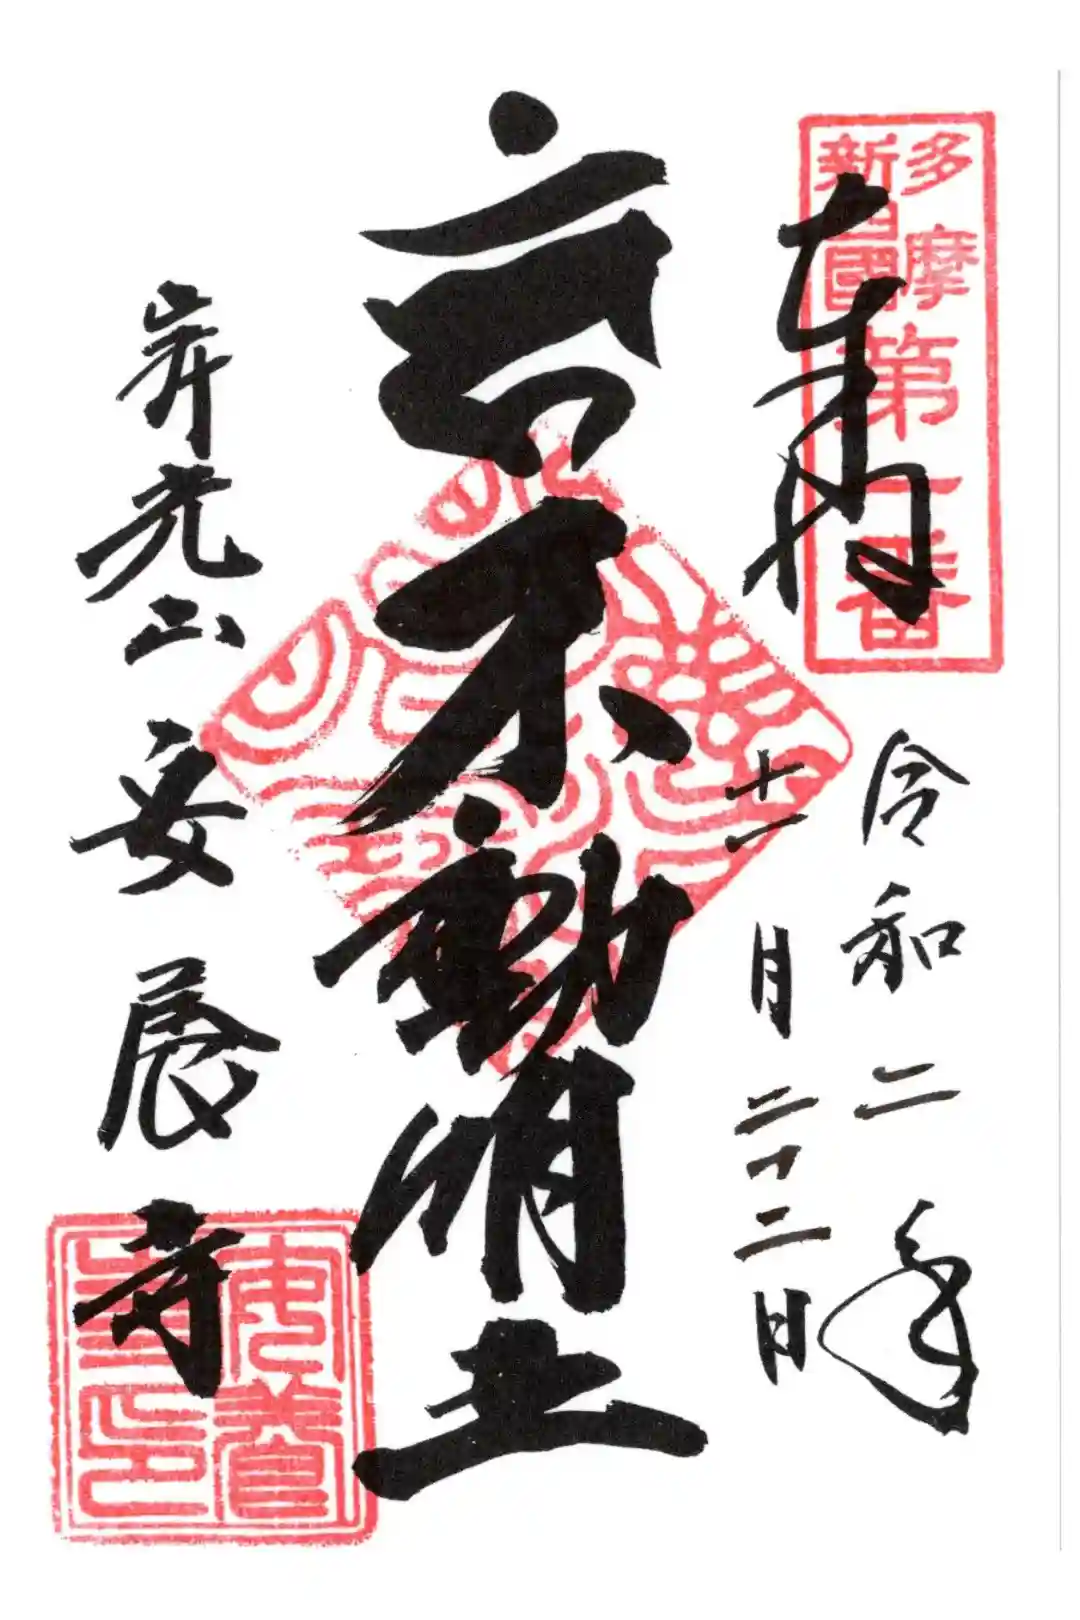 多摩
新四國
第一番
奉拝
令和二年
十一月二十二日
不動明王
光山安養寺
安養
寺印